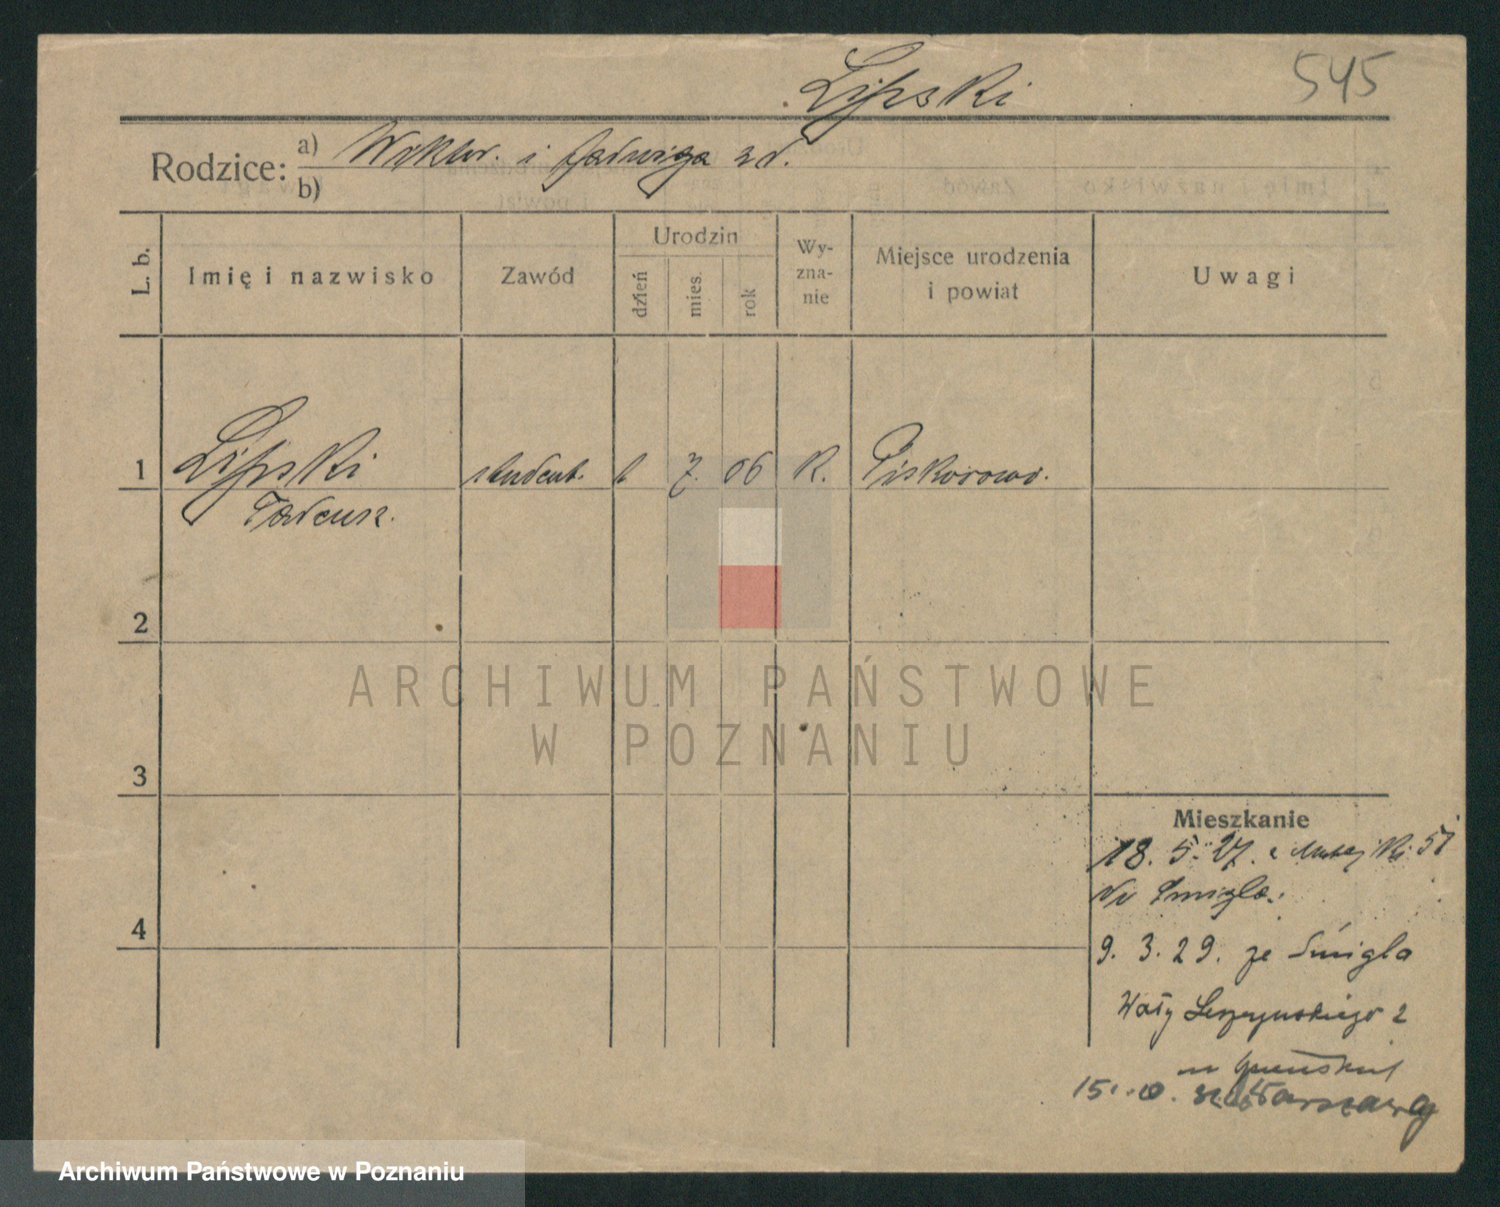 Lipski
545
Rodzice: a) Wiktor i Jadwiga zd.
b)
L. b. Imię i nazwisko Zawód Urodzin dzień mies. rok Wy-zna-nie Miejsce urodzenia i powiat Uwagi
1 Lipski student. 1 7. 06 R. Piskorowo.
Tadeusz.
2
ARCHIWUM PAŃSTWOWE
W POZNANIU
3
Mieszkanie
18. 5. 27. Matejki 51
do Śmigla.
4
9. 3. 29. ze Śmigla
Wały Leszczyńskiego 2
15. Warszawy
Archiwum Państwowe w Poznaniu